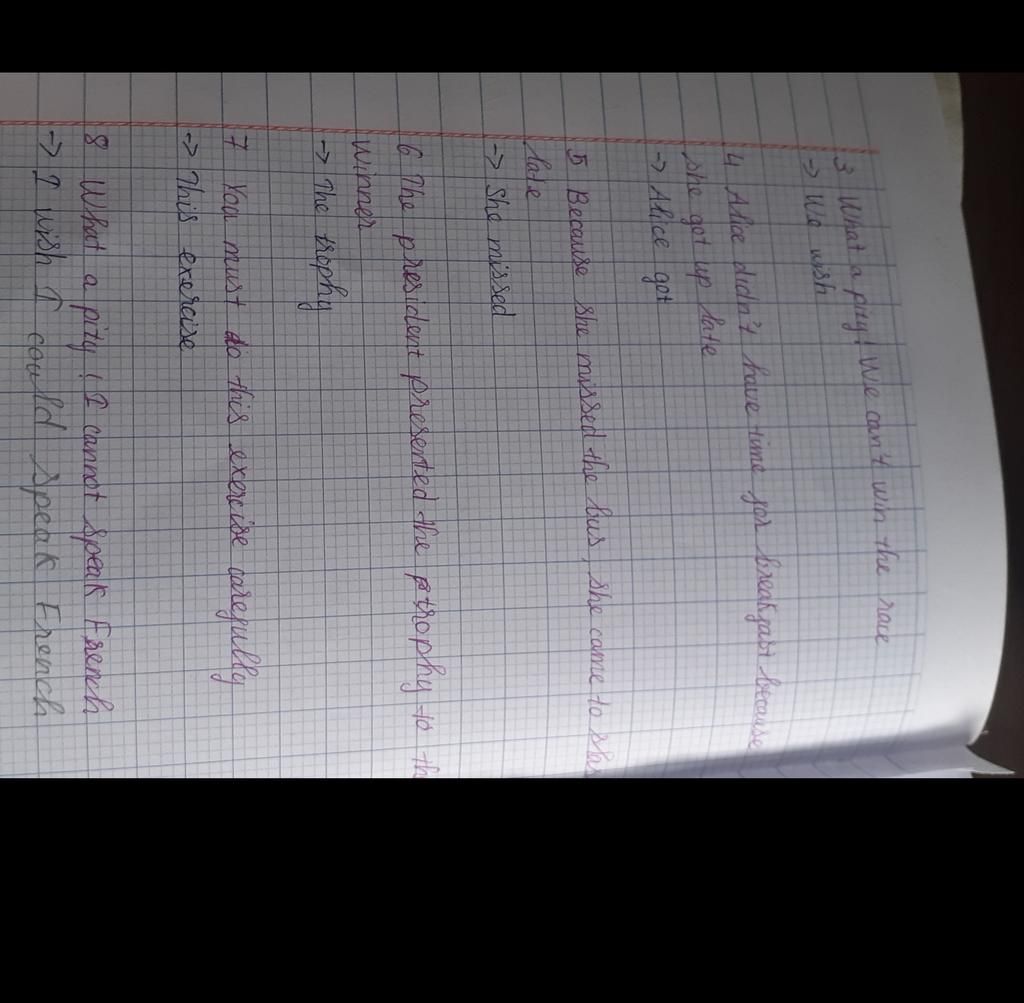 3 What a pity! We can't win the race
-> We wish
4 Alice didn't have time for breakfast because
she got up late
-> Alice got
5 Because she missed the bus, she came to
late
-> She missed
6 The president presented the trophy to
winner
-> The trophy
7 You must do this exercise carefully
-> This exercise
8 What a pity! I cannot speak French
-> I wish I could speak French